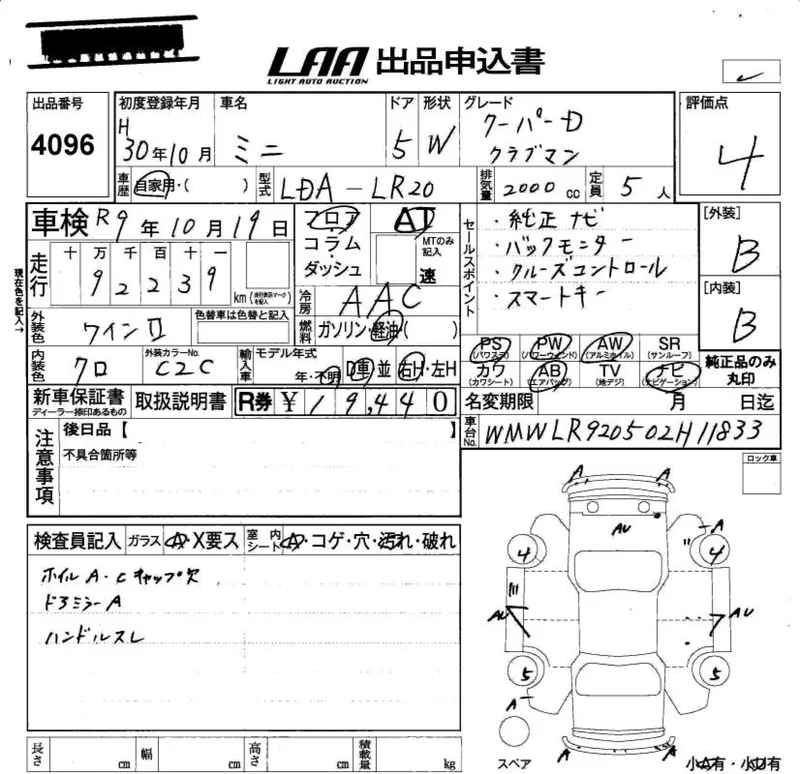 LAA 出品申込書
LIGHT AUTO AUCTION
出品番号 4096
初度登録年月 H 30年10月
車名 ミニ
ドア 5
形状 W
グレード クーパーD クラブマン
評価点 4
車歴 自家用・( )
型式 LDA-LR20
排気量 2000 cc
定員 5 人
車検 R9年10月19日
フロア・コラム・ダッシュ
AT
MTのみ記入 速
セールスポイント
・純正ナビ
・バックモニター
・クルーズコントロール
・スマートキー
[外装] B
[内装] B
現在色を記入→
走行 十万千百十一
92239 km (走行表示マークを記入)
冷房 AAC
外装色 ワインII
色替車は色替と記入
燃料 ガソリン・軽油・( )
内装色 クロ
外装カラーNo. C2C
輸入車 モデル年式 年・不明
D車 並
右H・左H
PS (パワステ)
PW (パワーウィンド)
AW (アルミホイル)
SR (サンルーフ)
カワ (カワシート)
AB (エアバッグ)
TV (地デジ)
ナビ (ナビゲーション)
純正品のみ丸印
新車保証書 ディーラー捺印あるもの
取扱説明書
R券 ¥ 19,440
名変期限 月 日迄
車台No. WMWLR920502H11833
注意事項
後日品【 】
不具合箇所等
ロック車
検査員記入
ガラス A・X要ス
室内シート A・コゲ・穴・汚れ・破れ
ホイルA・Cキャップ欠
ドアミラーA
ハンドルスレ
A A
AU
A
4 4
AU AU
5 5
A
A A
スペア
小A有・小U有
長さ cm
幅 cm
高さ cm
積載量 kg